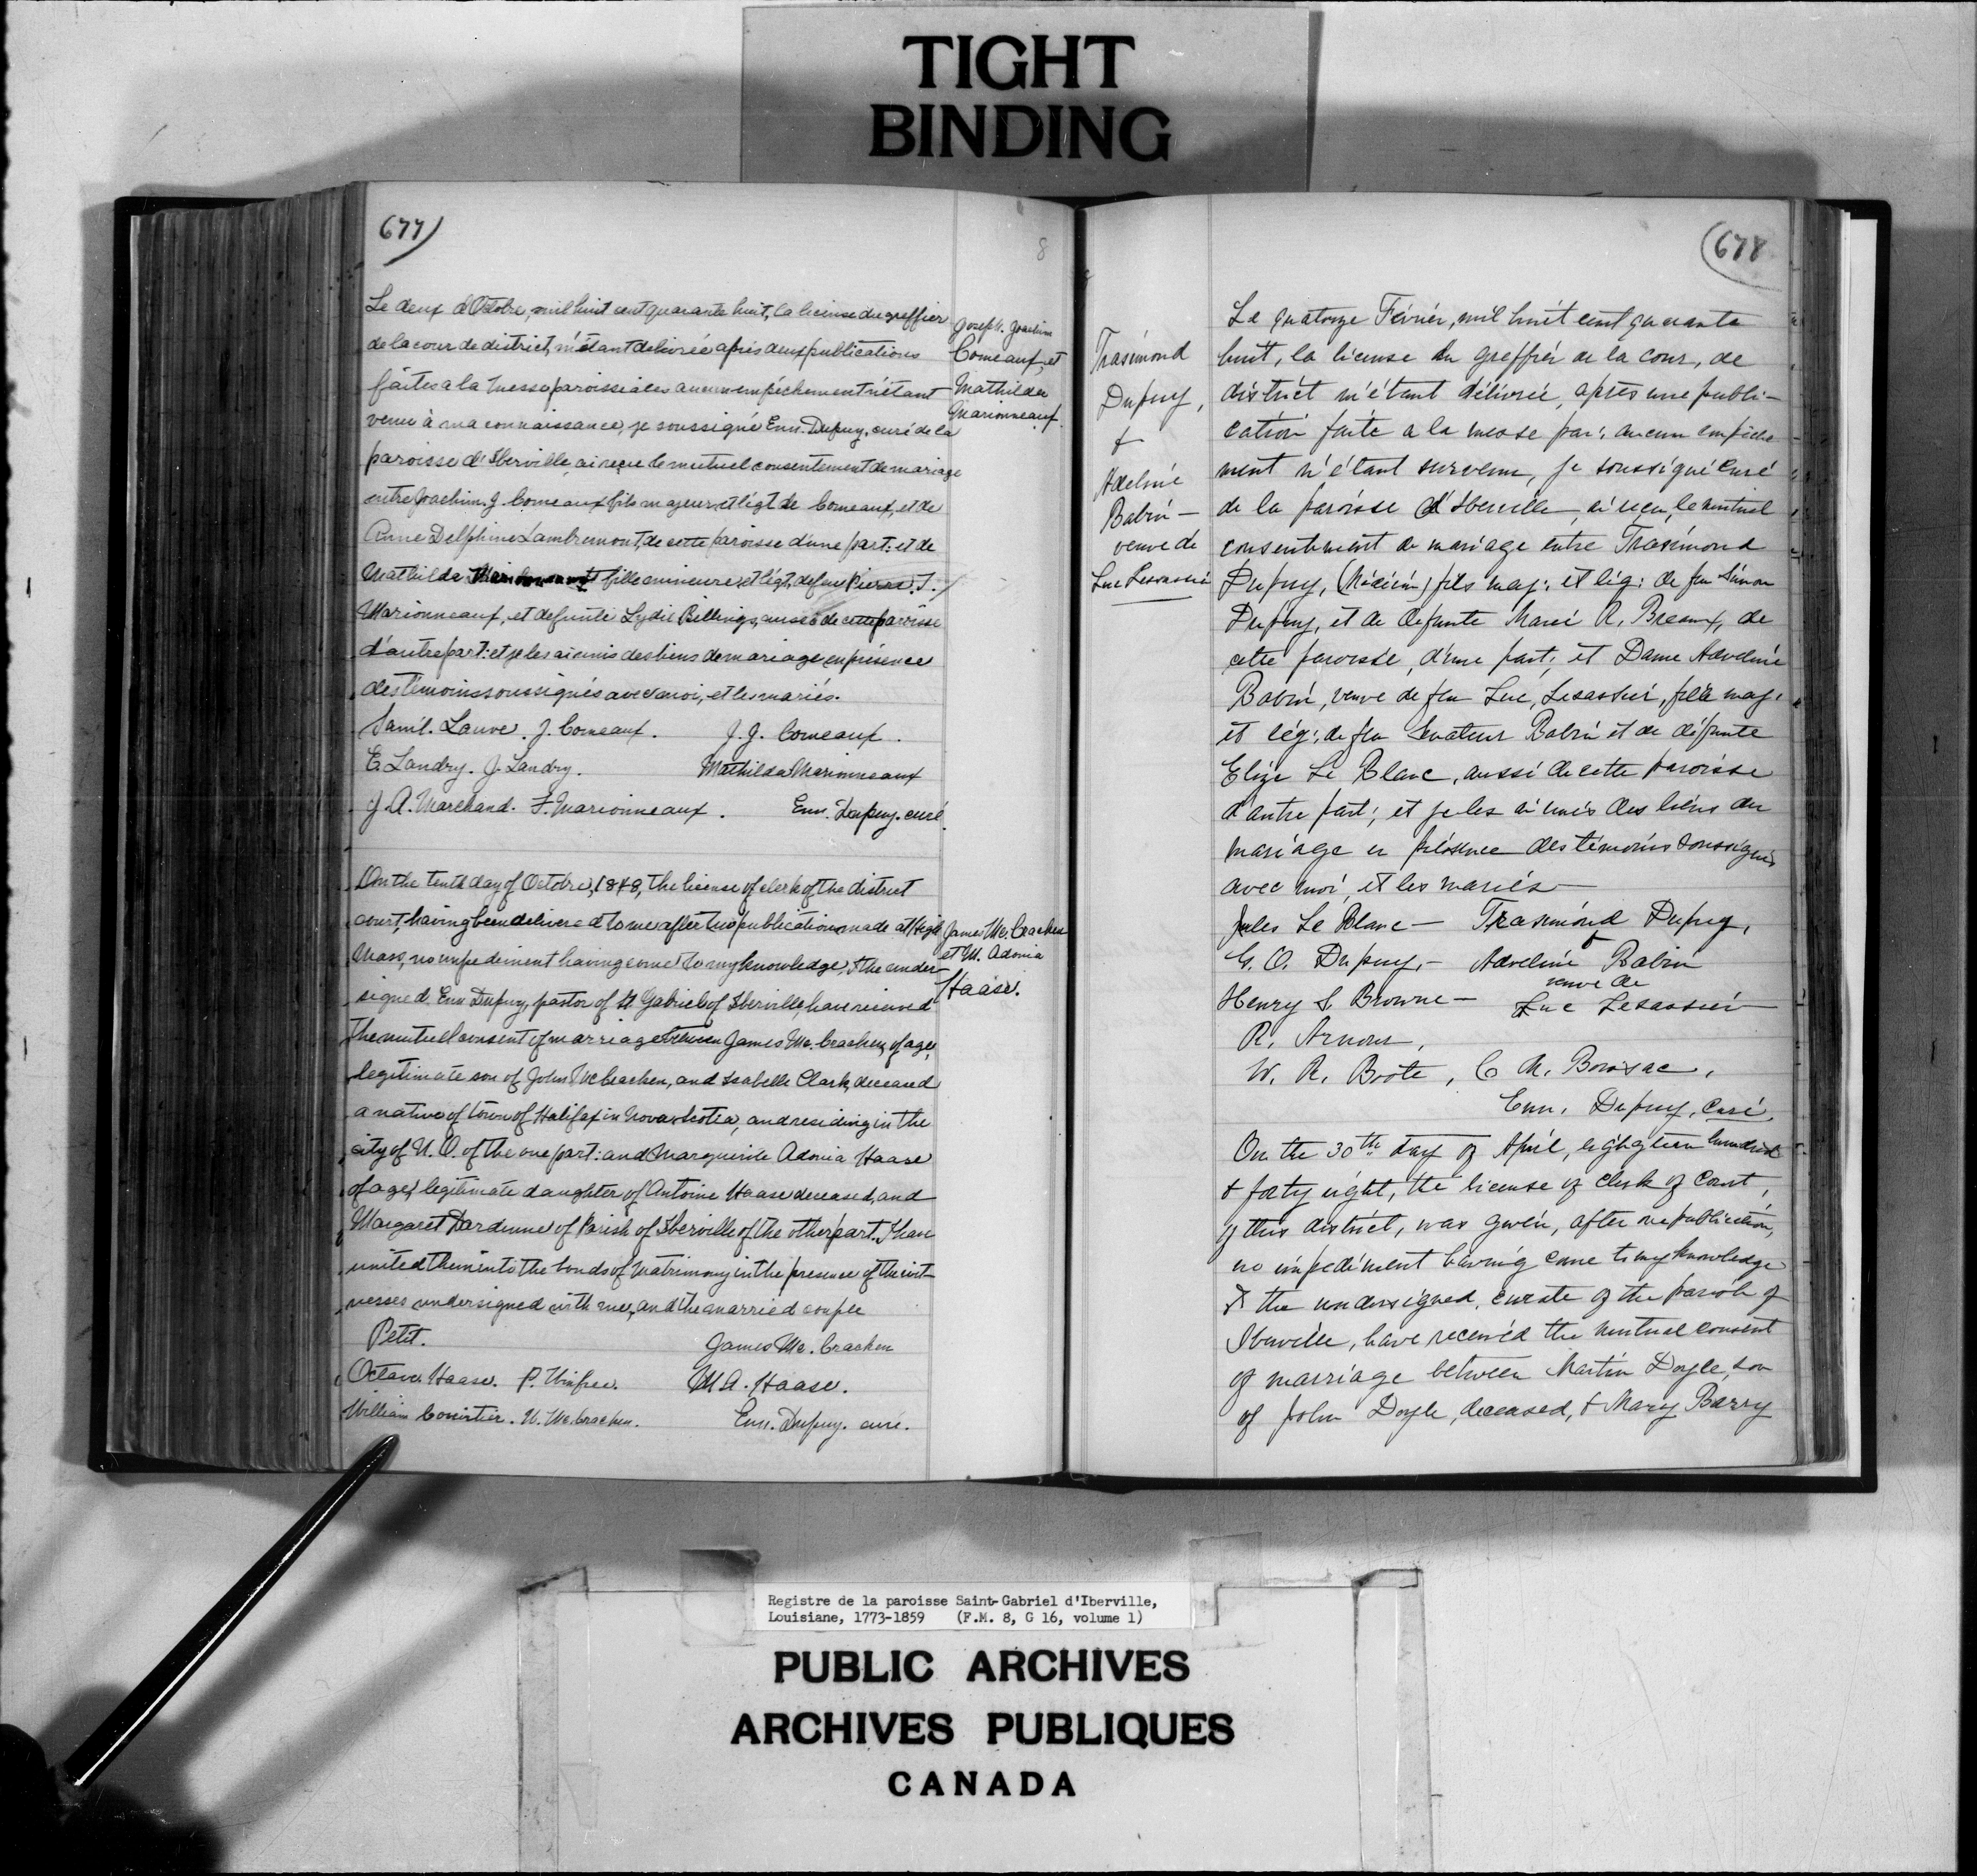 TIGHT
BINDING
677)
8
Le deux d'Octobre, mil huit cent quarante huit, la license du greffier
de la cour de district, m'étant delivrée après deux publications
faites a la messe paroissiales aucun empêchement n'étant
venu à ma connaissance, je soussigné Em. Dupuy, curé de la
paroisse d'Iberville, ai reçu le mutuel consentement de mariage
entre Joachim J. Comeaux fils majeur, et légt de Comeaux, et de
Anne Delphine Lambremont, de cette paroisse d'une part: et de
Mathilde fille mineure, et légt, de feu Pierre J.
Marionneaux, et defunte Lydie Billings, aussi de cette paroisse
d'autre part: et je les ai unis des liens de mariage en présence
des témoins soussignés avec moi, et les mariés.
Saml. Lauve. J. Comeaux. J. J. Comeaux.
E. Landry. J. Landry. Mathilda Marionneaux
J. A. Marchand. F. Marionneaux. Em. Dupuy. curé.
Joseph. Joachim
Comeaux, et
Mathilda
Marionneaux.
On the tenth day of Octobre, 1848, the license of clerk of the district
court, having been delivered to me after two publications made at High
Mass, no impediment having come to my knowledge, I the under
signed Em. Dupuy, pastor of St Gabriel of Iberville have received
the mutuel consent of marriage between James Mc. Cracken, of age,
legitimate son of John McCracken, and Isabelle Clark, deceased
a native of town of Halifax in Nova Scotia, and residing in the
city of N. O. of the one part: and Marguerite Adonia Haase
of age, legitimate daughter of Antoine Haase deceased, and
Margaret Dardenne of Parish of Iberville of the other part. I have
united them into the bonds of Matrimony in the presence of the wit-
nesses undersigned with me, and the married couple
Petit. James Mc. Cracken
Octave Haase. P. Winfree. M A. Haase.
William Courtier. W. Mc. Cracken. Em. Dupuy. curé.
James Mc. Cracken
et M. Adonia
Haase.
(678
Trasimond
Dupuy,
+
Adeline
Babin —
veuve de
Luc Lesassié
Le quatorze Février, mil huit cent quarante
huit, la license du greffier de la cour, de
district m'étant délivrée, après une publi-
cation faite a la messe par: aucun empêche-
ment n'étant survenu, je soussigné Curé
de la paroisse d'Iberville, ai reçu, le mutuel
consentement de mariage entre Trasimond
Dupuy, (Médicin) fils maj: et lég: de feu Simon
Dupuy, et de defunte Marie R. Breaux, de
cette paroisse, d'une part, et Dame Adveline
Babin, veuve de feu Luc, Lesassier, fille maj:
et lég: de feu Senateur Babin et de défunte
Elize Le Blanc, aussi de cette paroisse
d'autre part; et je les ai unis des liens du
mariage en présence des témoins soussignés
avec moi, et les mariés —
Jules Le Blanc — Trasimond Dupuy,
+
G. O. Dupuy, — Adveline Babin
veuve de
Henry S Browne — Luc Lesassier —
R. Arnous,
W. R. Boote, C. A. Boissac,
Em, Dupuy, Curé.
On the 30th day of April, eighgteen hundred
& forty eight, the license of clerk of Court,
of this district, was given, after one publication,
no impediment having come to my knowledge
I the undersigned, curate of the parish of
Iberville, have received the mutual consent
of marriage between Martin Doyle, son
of John Doyle, deceased, & Mary Barry
Registre de la paroisse Saint-Gabriel d'Iberville,
Louisiane, 1773-1859 (F.M. 8, G 16, volume 1)
PUBLIC ARCHIVES
ARCHIVES PUBLIQUES
CANADA